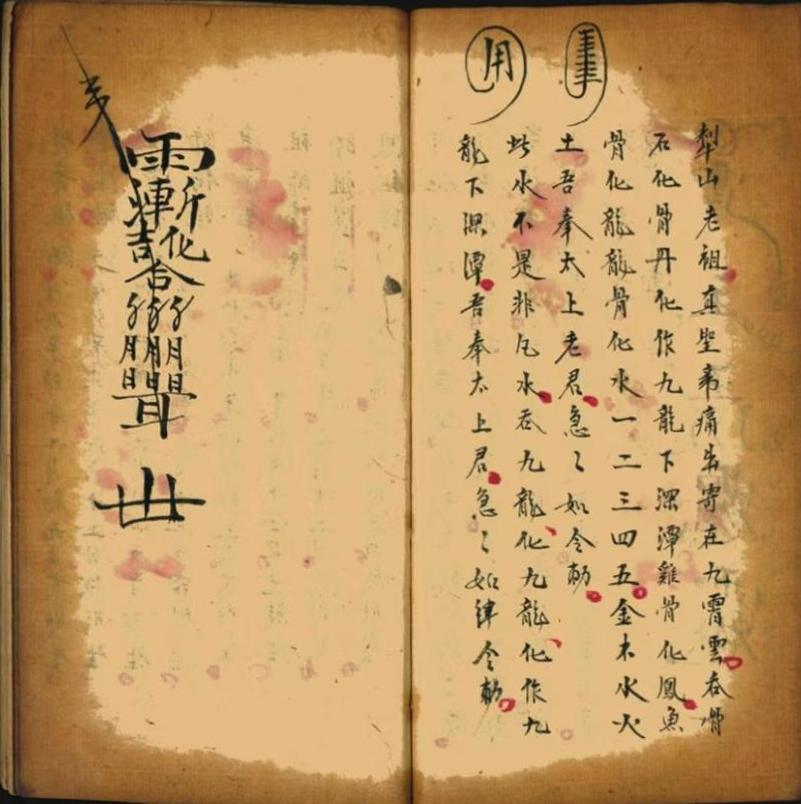 犂山老祖真聖痛寄在九霄雲吞骨
石化骨丹化作九龍下深潭雞骨化鳳魚
骨化龍龍骨化水一二三四五金木水火
土吾奉太上老君急〻如令勅
此水不是非凡水吞九龍化九龍化作九
龍下深潭吾奉太上君急〻如律令勅
用